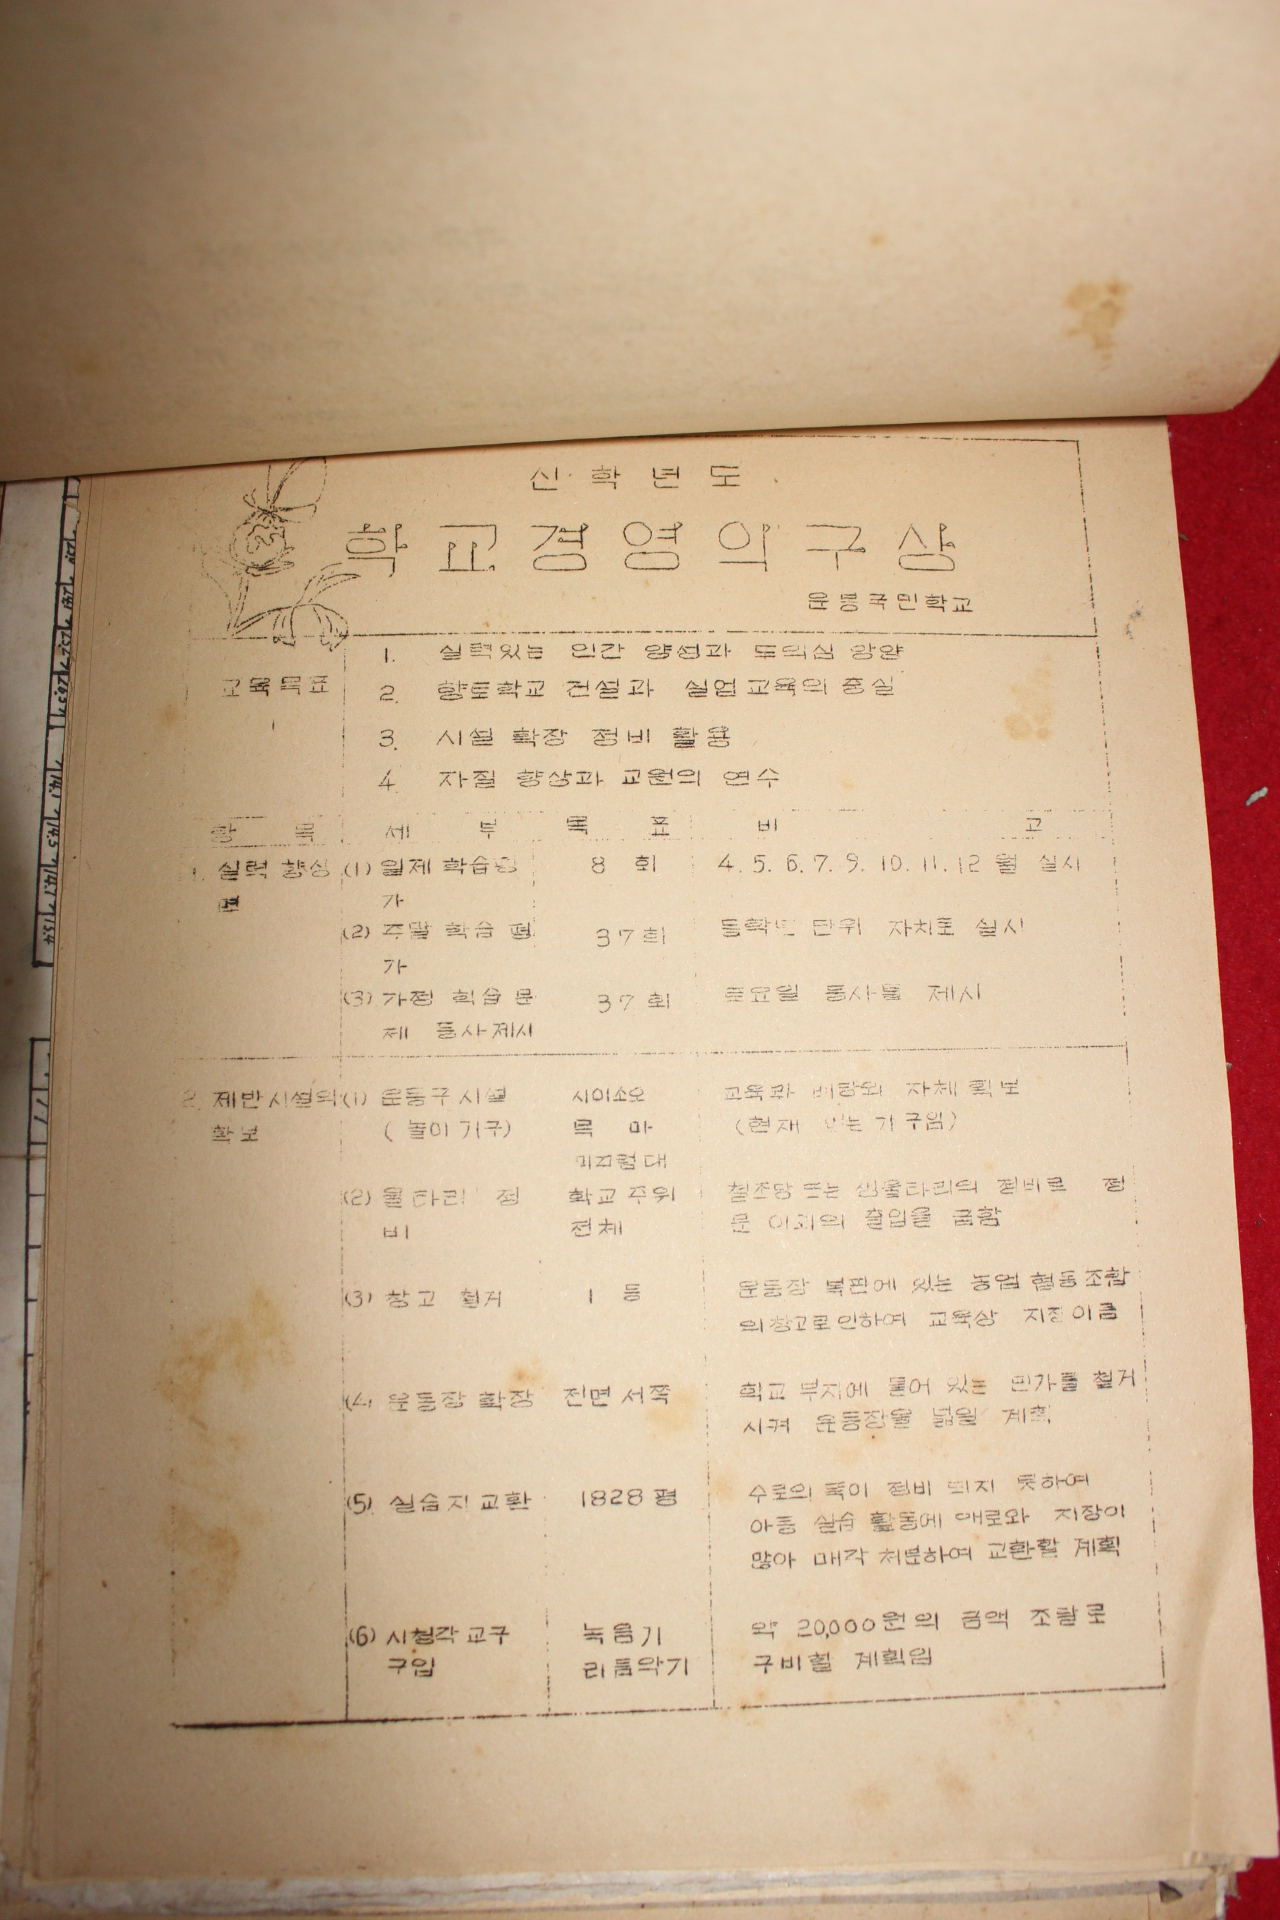 신학년도
학교경영의구상
운봉국민학교
교육목표
1. 실력있는 인간 양성과 도의심 앙양
2. 향토학교 건설과 실업교육의 충실
3. 시설 확장 정비 활용
4. 자질 향상과 교원의 연수
항 목 세 부 목 표 비 고
1. 실력 향상 (1) 일제 학습평 8 회 4. 5. 6. 7. 9. 10. 11. 12 월 실시
면 가
(2) 주말 학습 평 37회 동학년 단위 자치로 실시
가
(3) 가정 학습 문 37회 토요일 등사물 제시
제 등사제시
2. 제반시설의 (1) 운동구시설 시이소오 교육과 자체 확보
확보 (놀이기구) 목 마 (현재 있는 기구임)
미끄럼대
(2) 울타리 정 학교주위 철조망 또는 생울타리의 정비로 정
비 전체 문 이외의 출입을 금함
(3) 창고 철거 1 동 운동장 복판에 있는 농업협동조합
의창고로인하여 교육상 지장이큼
(4) 운동장 확장 전면서쪽 학교 부지에 붙어 있는 민가를 철거
시켜 운동장을 넓일 계획
(5) 실습지 교환 1828평 수로의 폭이 정비 되지 못하여
아동 실습 활동에 애로와 지장이
많아 매각 처분하여 교환할 계획
(6) 시청각교구 녹음기 약 20,000원의 금액 조달로
구입 리듬악기 구비할 계획임